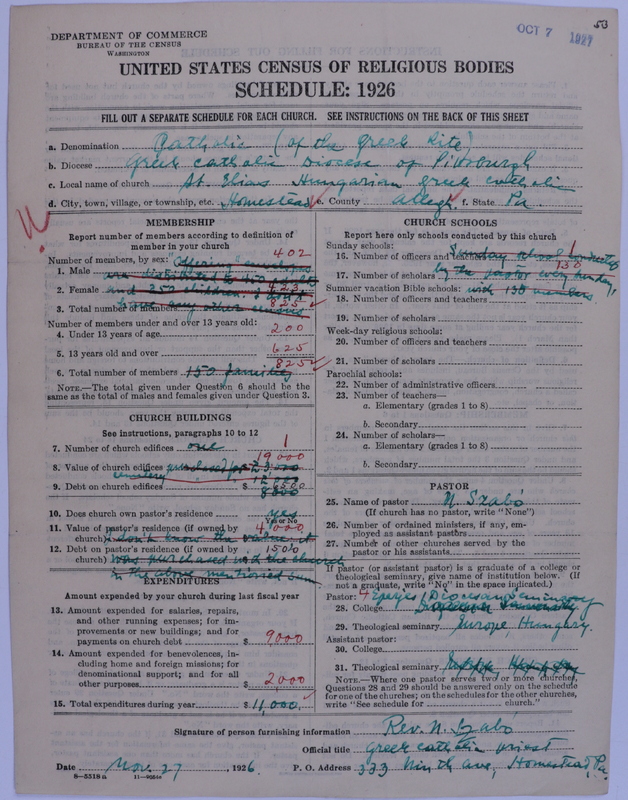 53
DEPARTMENT OF COMMERCE
BUREAU OF THE CENSUS
WASHINGTON
OCT 7 1927
UNITED STATES CENSUS OF RELIGIOUS BODIES
SCHEDULE: 1926
FILL OUT A SEPARATE SCHEDULE FOR EACH CHURCH. SEE INSTRUCTIONS ON THE BACK OF THIS SHEET
a. Denomination Catholic (of the Greek Rite)
b. Diocese Greek Catholic Diocese of Pittsburgh
c. Local name of church St. Elias Hungarian Greek Catholic
d. City, town, village, or township, etc. Homestead e. County Allegh. f. State Pa
MEMBERSHIP
Report number of members according to definition of
member in your church
Number of members, by sex: "Offering" envelopes 402
1. Male are distributed to 450 adults
2. Female and 250 children. I don't 423
3. Total number of members have any other census 825
Number of members under and over 13 years old:
4. Under 13 years of age 200
5. 13 years old and over 625
6. Total number of members 150 families 825
NOTE.—The total given under Question 6 should be the
same as the total of males and females given under Question 3.
CHURCH BUILDINGS
See instructions, paragraphs 10 to 12
7. Number of church edifices one 1
8. Value of church edifices purchased for 19000
cemetery
9. Debt on church edifices $ 6500
8000
10. Does church own pastor's residence yes
Yes or No
11. Value of pastor's residence (if owned by 4000
church) I don't know the value it
12. Debt on pastor's residence (if owned by 1500
church) was purchased with the church
in the above mentioned sum
EXPENDITURES
Amount expended by your church during last fiscal year
13. Amount expended for salaries, repairs,
and other running expenses; for im-
provements or new buildings; and for
payments on church debt $ 9000
14. Amount expended for benevolences, in-
cluding home and foreign missions; for
denominational support; and for all
other purposes $ 2000
15. Total expenditures during year $ 11,000
CHURCH SCHOOLS
Report here only schools conducted by this church
Sunday schools: 1
16. Number of officers and teachers Sunday school conducted
130
17. Number of scholars by the pastor every Sunday,
Summer vacation Bible schools: with 130 members
18. Number of officers and teachers
19. Number of scholars
Week-day religious schools:
20. Number of officers and teachers
21. Number of scholars
Parochial schools:
22. Number of administrative officers
23. Number of teachers—
a. Elementary (grades 1 to 8)
b. Secondary
24. Number of scholars—
a. Elementary (grades 1 to 8)
b. Secondary
PASTOR
25. Name of pastor N. Szabó
(If church has no pastor, write "None")
26. Number of ordained ministers, if any, em-
ployed as assistant pastors
27. Number of other churches served by the
pastor or his assistants
If pastor (or assistant pastor) is a graduate of a college or
theological seminary, give name of institution below. (If
not a graduate, write "No" in the space indicated.)
Pastor: Eperjes, Diocesan Seminary
28. College
29. Theological seminary Europe, Hungary.
Assistant pastor:
30. College
31. Theological seminary
NOTE.—Where one pastor serves two or more churches,
Questions 28 and 29 should be answered only on the schedule
for one of the churches; on the schedules for the other churches,
write "See schedule for church."
Signature of person furnishing information Rev. N. Szabó
Official title Greek Catholic priest
Date Nov. 27, 1926 P. O. Address 333 Ninth Ave, Homestead, Pa.
8—5518a